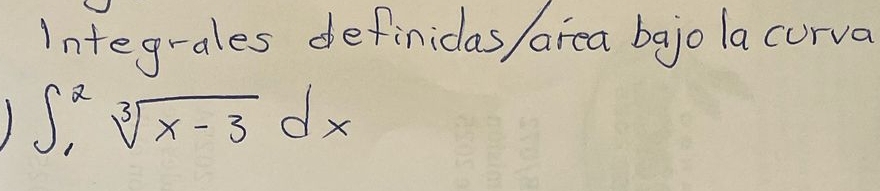 Integrales definidas/área bajo la curva
) ∫₁² ∛(x-3) dx